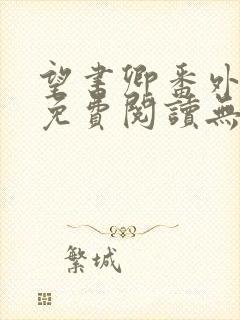 望書卿番外
免費閱讀無
繁城